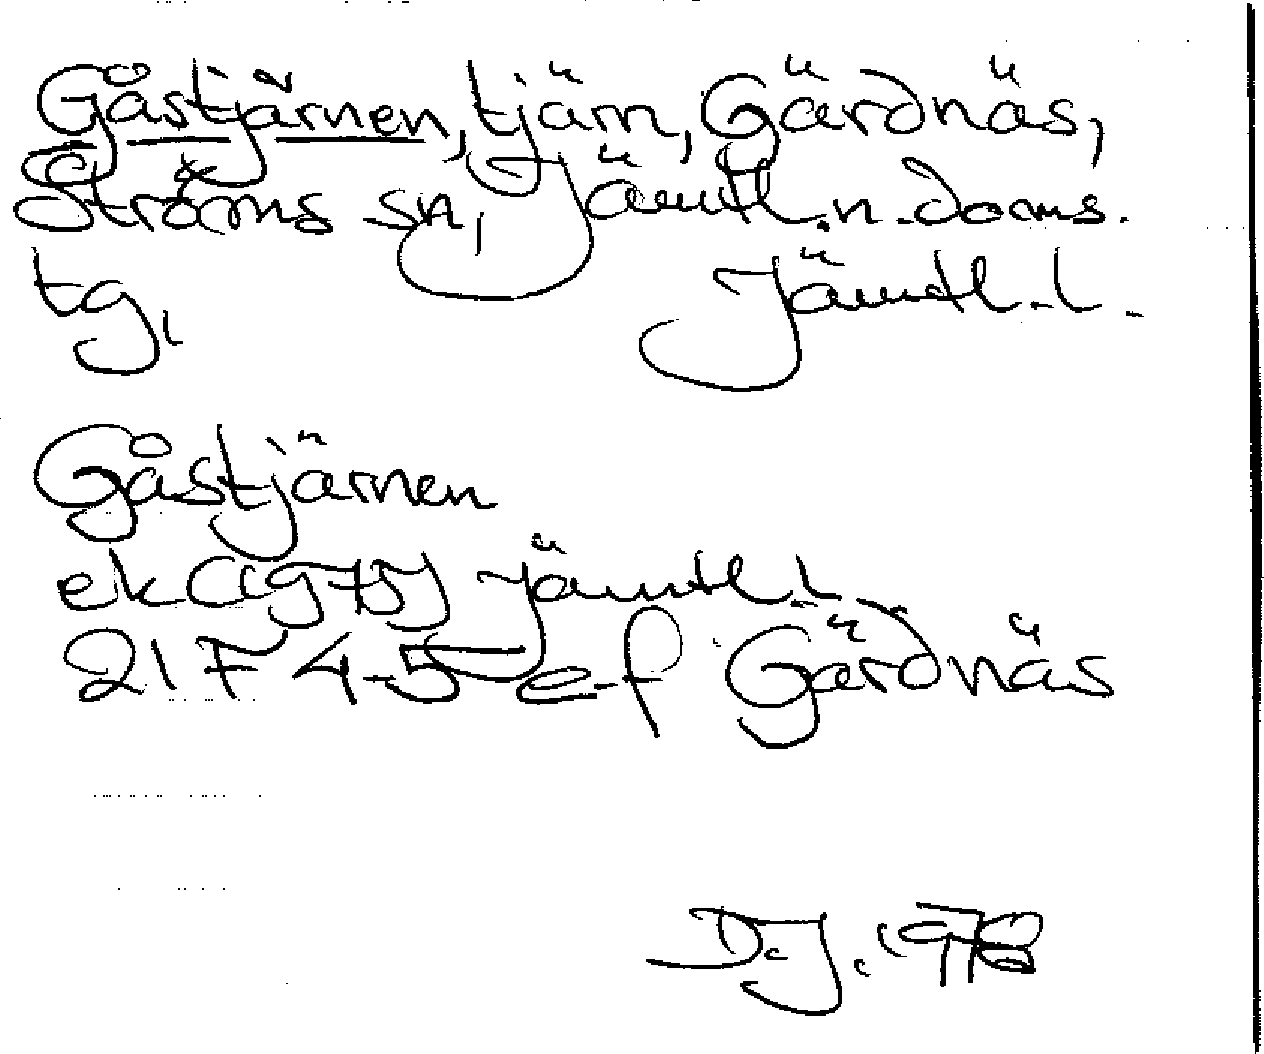 Gåstjärnen, tjärn, Gärdnäs,
Ströms sn, Jämtl. n. doms.
tg, Jämtl. l.
Gåstjärnen
ek (1975) Jämtl. l.
21 F 4-5 e-f Gärdnäs
D.J. 1978